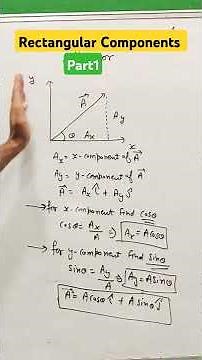 Rectangular Components
Part1
y
A⃗
Ay
θ Ax
x
Ax = x-component of A⃗
Ay = y-component of A⃗
A⃗ = Ax î + Ay ĵ
→ for x-component find cosθ
cosθ = Ax/A ⇒ Ax = A cosθ
→ for y-component find sinθ
sinθ = Ay/A ⇒ Ay = A sinθ
A⃗ = A cosθ î + A sinθ ĵ